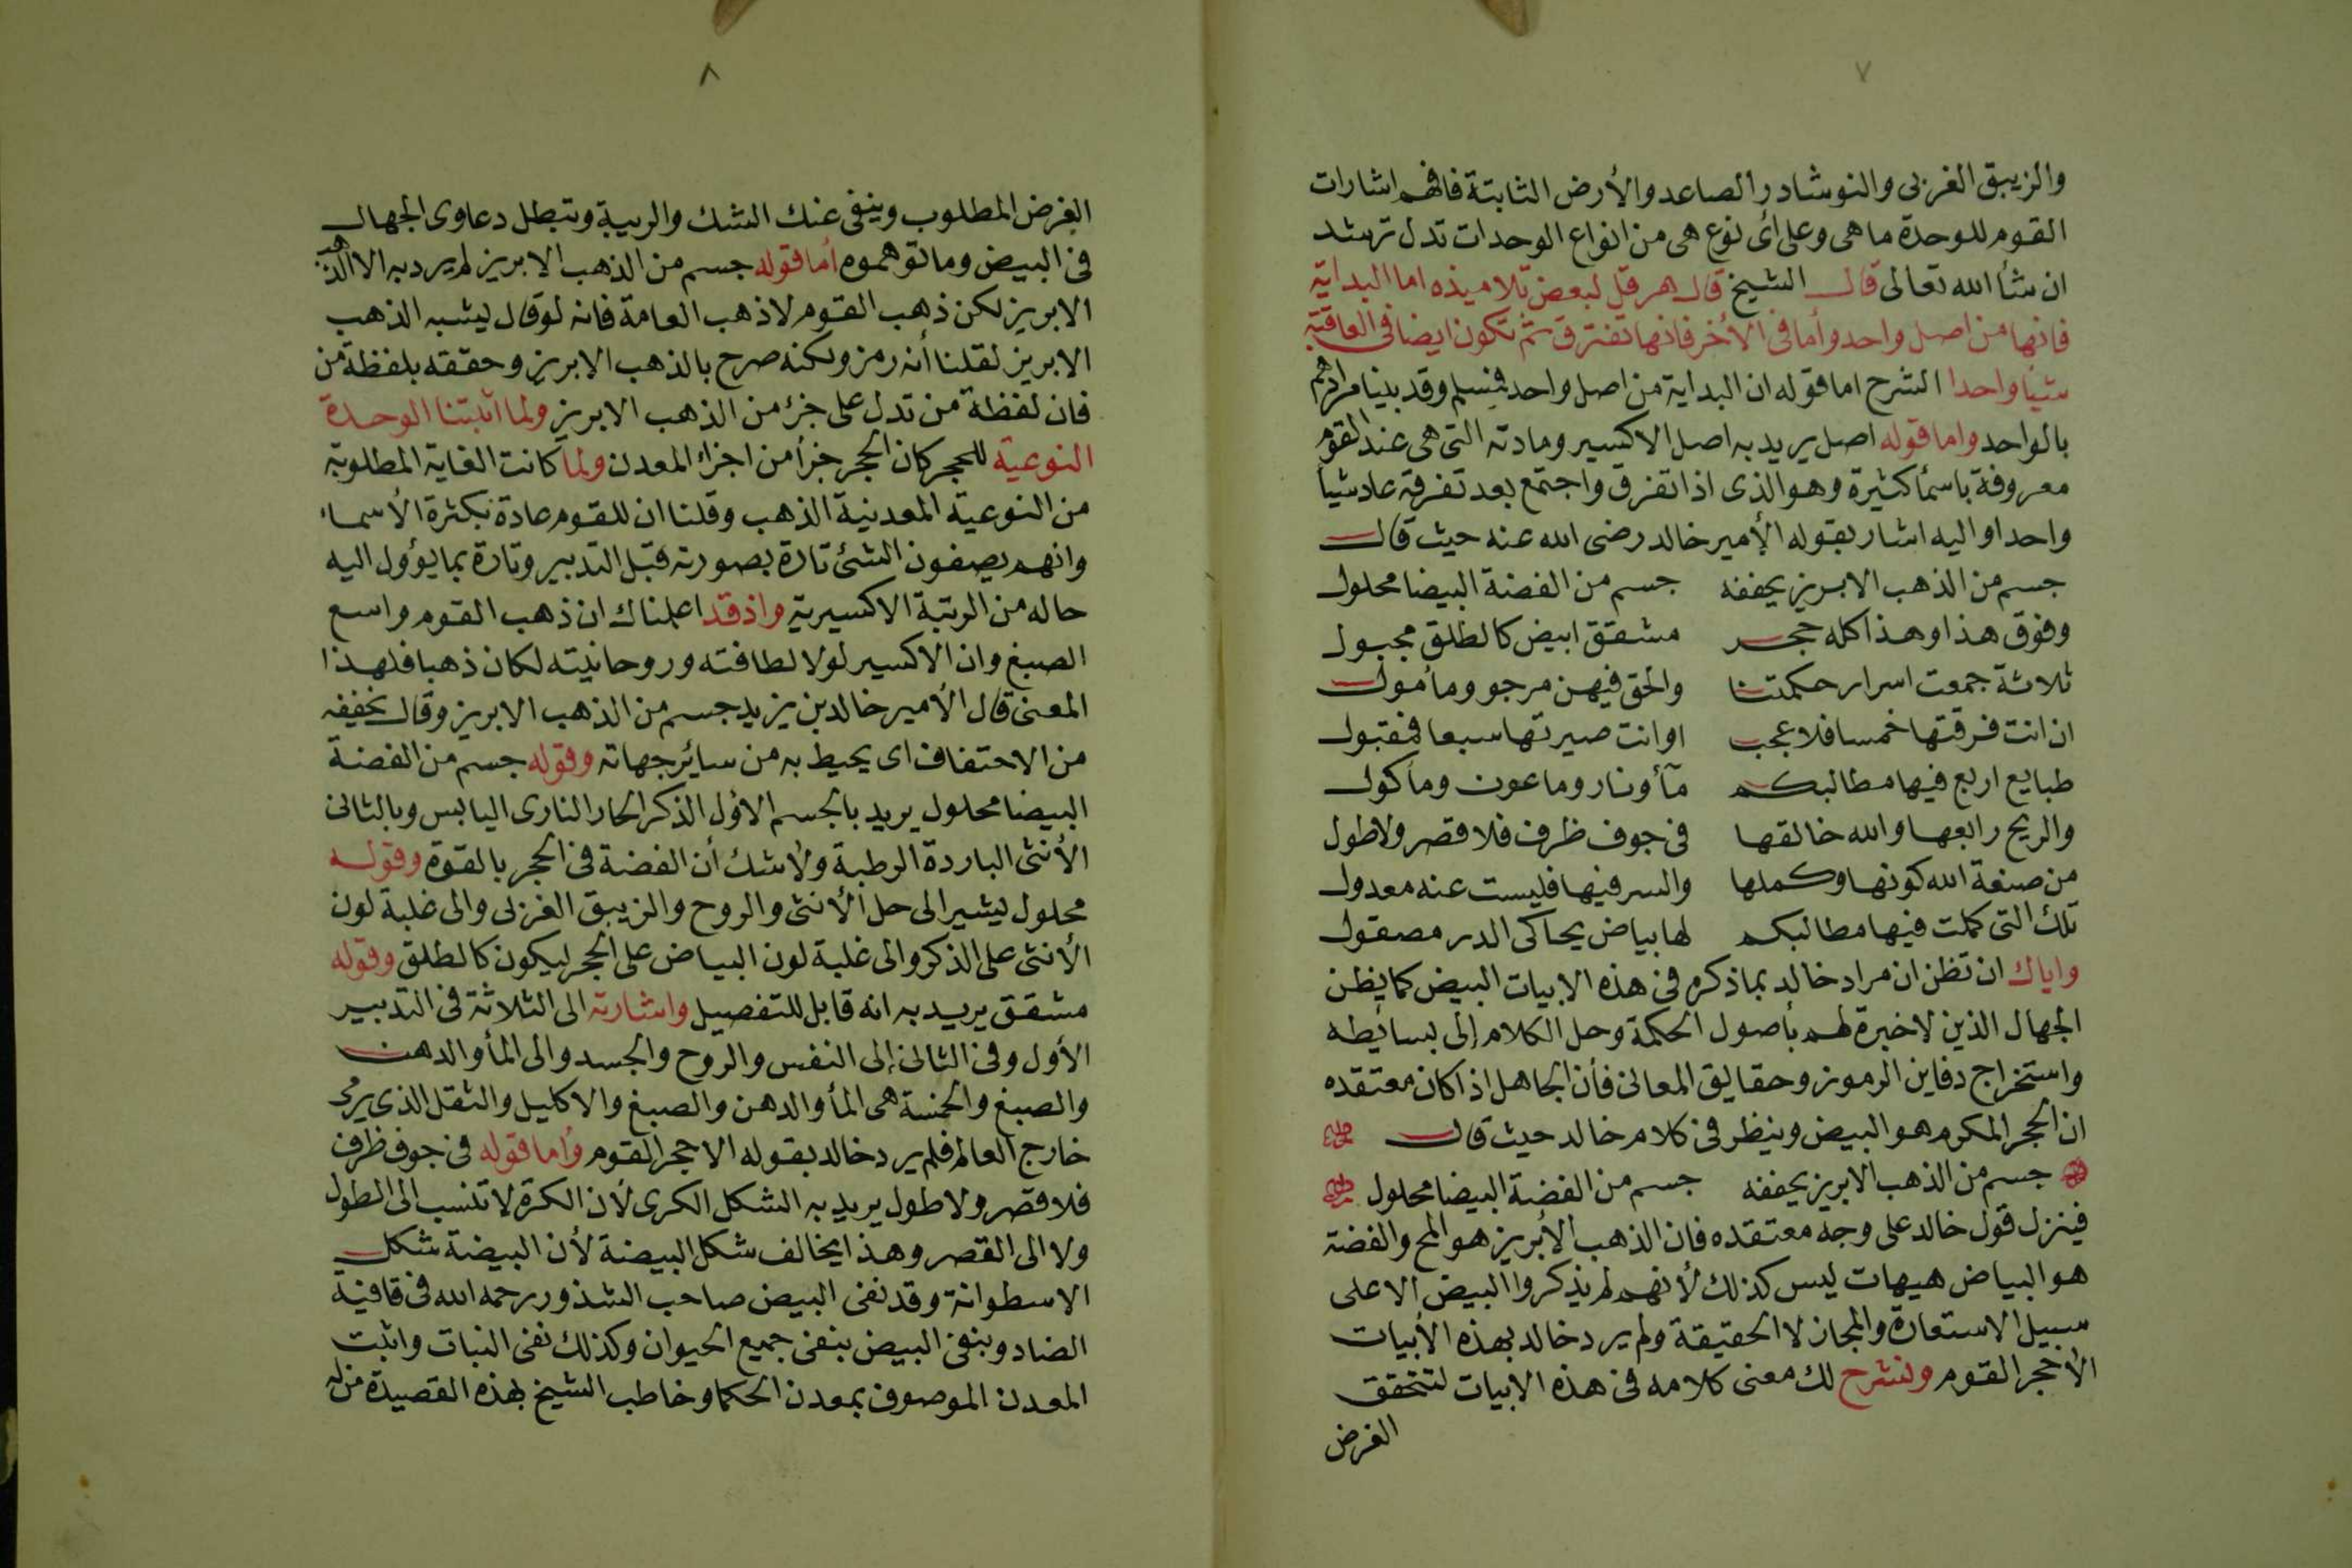 ٧
والزيبق الغربى والنوشادر الصاعد والأرض الثابتة فافهم اشارات
القوم للوحدة ما هى وعلى أى نوع هى من انواع الوحدات تدل ترشد
ان شأ الله تعالى قال الشيخ قال هرقل لبعض تلاميذه اما البداية
فانها من اصل واحد وأما فى الأخر فانها تفترق ثم تكون ايضا فى العاقبة
شيأ واحدا الشرح اما قوله ان البداية من اصل واحد فيسلم وقد بينا مرادهم
بالواحد واما قوله اصل يريد به اصل الاكسير ومادته التى هى عند القوم
معروفة باسمأ كثيرة وهو الذى اذا تفرق واجتمع بعد تفرقه عاد شيأ
واحدا واليه اشار بقوله الأمير خالد رضى الله عنه حيث قال
جسم من الذهب الابريز يحففه جسم من الفضة البيضا محلول
وفوق هذا وهذا كله حجر مشقق ابيض كالطلق مجبول
ثلاثة جمعت اسرار حكمتنا والحق فيهن مرجو ومأمول
ان انت فرقتها خمسا فلا عجب او انت صيرتها سبعا فمقبول
طبايع اربع فيها مطالبكم مآ ونار وماعون ومأكول
والريح رابعها والله خالقها فى جوف ظرف فلا قصر ولا طول
من صنعة الله كونها وكملها والسر فيها فليست عنه معدول
تلك التى كملت فيها مطالبكم لها بياض يحاكى الدر مصقول
واياك ان تظن ان مراد خالد بما ذكره فى هذه الابيات البيض كما يظن
الجهال الذين لا خبرة لهم بأصول الحكمة وحل الكلام إلى بسائطه
واستخراج دفاين الرموز وحقايق المعانى فأن الجاهل اذا كان معتقده
ان الحجر المكرم هو البيض وينظر فى كلام خالد حيث قال
جسم من الذهب الابريز يحففه جسم من الفضة البيضا محلول
فينزل قول خالد على وجه معتقده فان الذهب الأبريز هو المح والفضة
هو البياض هيهات ليس كذلك لأنهم لم يذكروا البيض الا على
سبيل الاستعارة والمجاز لا الحقيقة ولم يرد خالد بهذه الأبيات
الأحجر القوم ولنشرح لك معنى كلامه فى هذه الابيات لتتحقق
الغرض
٨
الغرض المطلوب وينفى عنك الشك والريبة وتبطل دعاوى الجهال
فى البيض وما توهموه أما قوله جسم من الذهب الابريز لم يرد به الا الذهب
الابريز لكن ذهب القوم لا ذهب العامة فانه لو قال يشبه الذهب
الابريز لقلنا أنه رمز ولكنه صرح بالذهب الابريز وحققه بلفظة من
فان لفظة من تدل على جزء من الذهب الابريز ولما اثبتنا الوحدة
النوعية للحجر كان الحجر جزأ من اجزاء المعدن ولما كانت الغاية المطلوبة
من النوعية المعدنية الذهب وقلنا ان للقوم عادة بكثرة الأسماء
وانهم يصفون الشئ تارة بصورته قبل التدبير وتارة بما يؤول اليه
حاله من الرتبة الاكسيرية واذ قد اعلمناك ان ذهب القوم واسع
الصبغ وان الاكسير لولا لطافته وروحانيته لكان ذهبا فلهذا
المعنى قال الأمير خالد بن يزيد جسم من الذهب الابريز وقال يحففه
من الاحتفاف اى يحيط به من سائر جهاته وقوله جسم من الفضة
البيضا محلول يريد بالجسم الأول الذكر الحار النارى اليابس وبالثانى
الأنثى الباردة الرطبة ولا شك أن الفضة فى الحجر بالقوة وقوله
محلول يشير الى حل الأنثى والروح والزيبق الغربى والى غلبة لون
الأنثى على الذكر والى غلبة لون البياض على الحجر ليكون كالطلق وقوله
مشقق يريد به انه قابل للتفصيل واشارته الى الثلاثة فى التدبير
الأول وفى الثانى إلى النفس والروح والجسد والى المأ والدهن
والصبغ والخمسة هى المأ والدهن والصبغ والاكليل والثقل الذى يرمى
خارج العالم فلم يرد خالد بقوله الا حجر القوم وأما قوله فى جوف ظرف
فلا قصر ولا طول يريد به الشكل الكرى لأن الكرة لا تنسب الى الطول
ولا الى القصر وهذا يخالف شكل البيضة لأن البيضة شكل
الاسطوانة وقد نفى البيض صاحب الشذور رحمه الله فى قافية
الضاد وبنفى البيض بنفى جميع الحيوان وكذلك نفى النبات واثبت
المعدن الموصوف بمعدن الحكما وخاطب الشيخ بهذه القصيدة من له